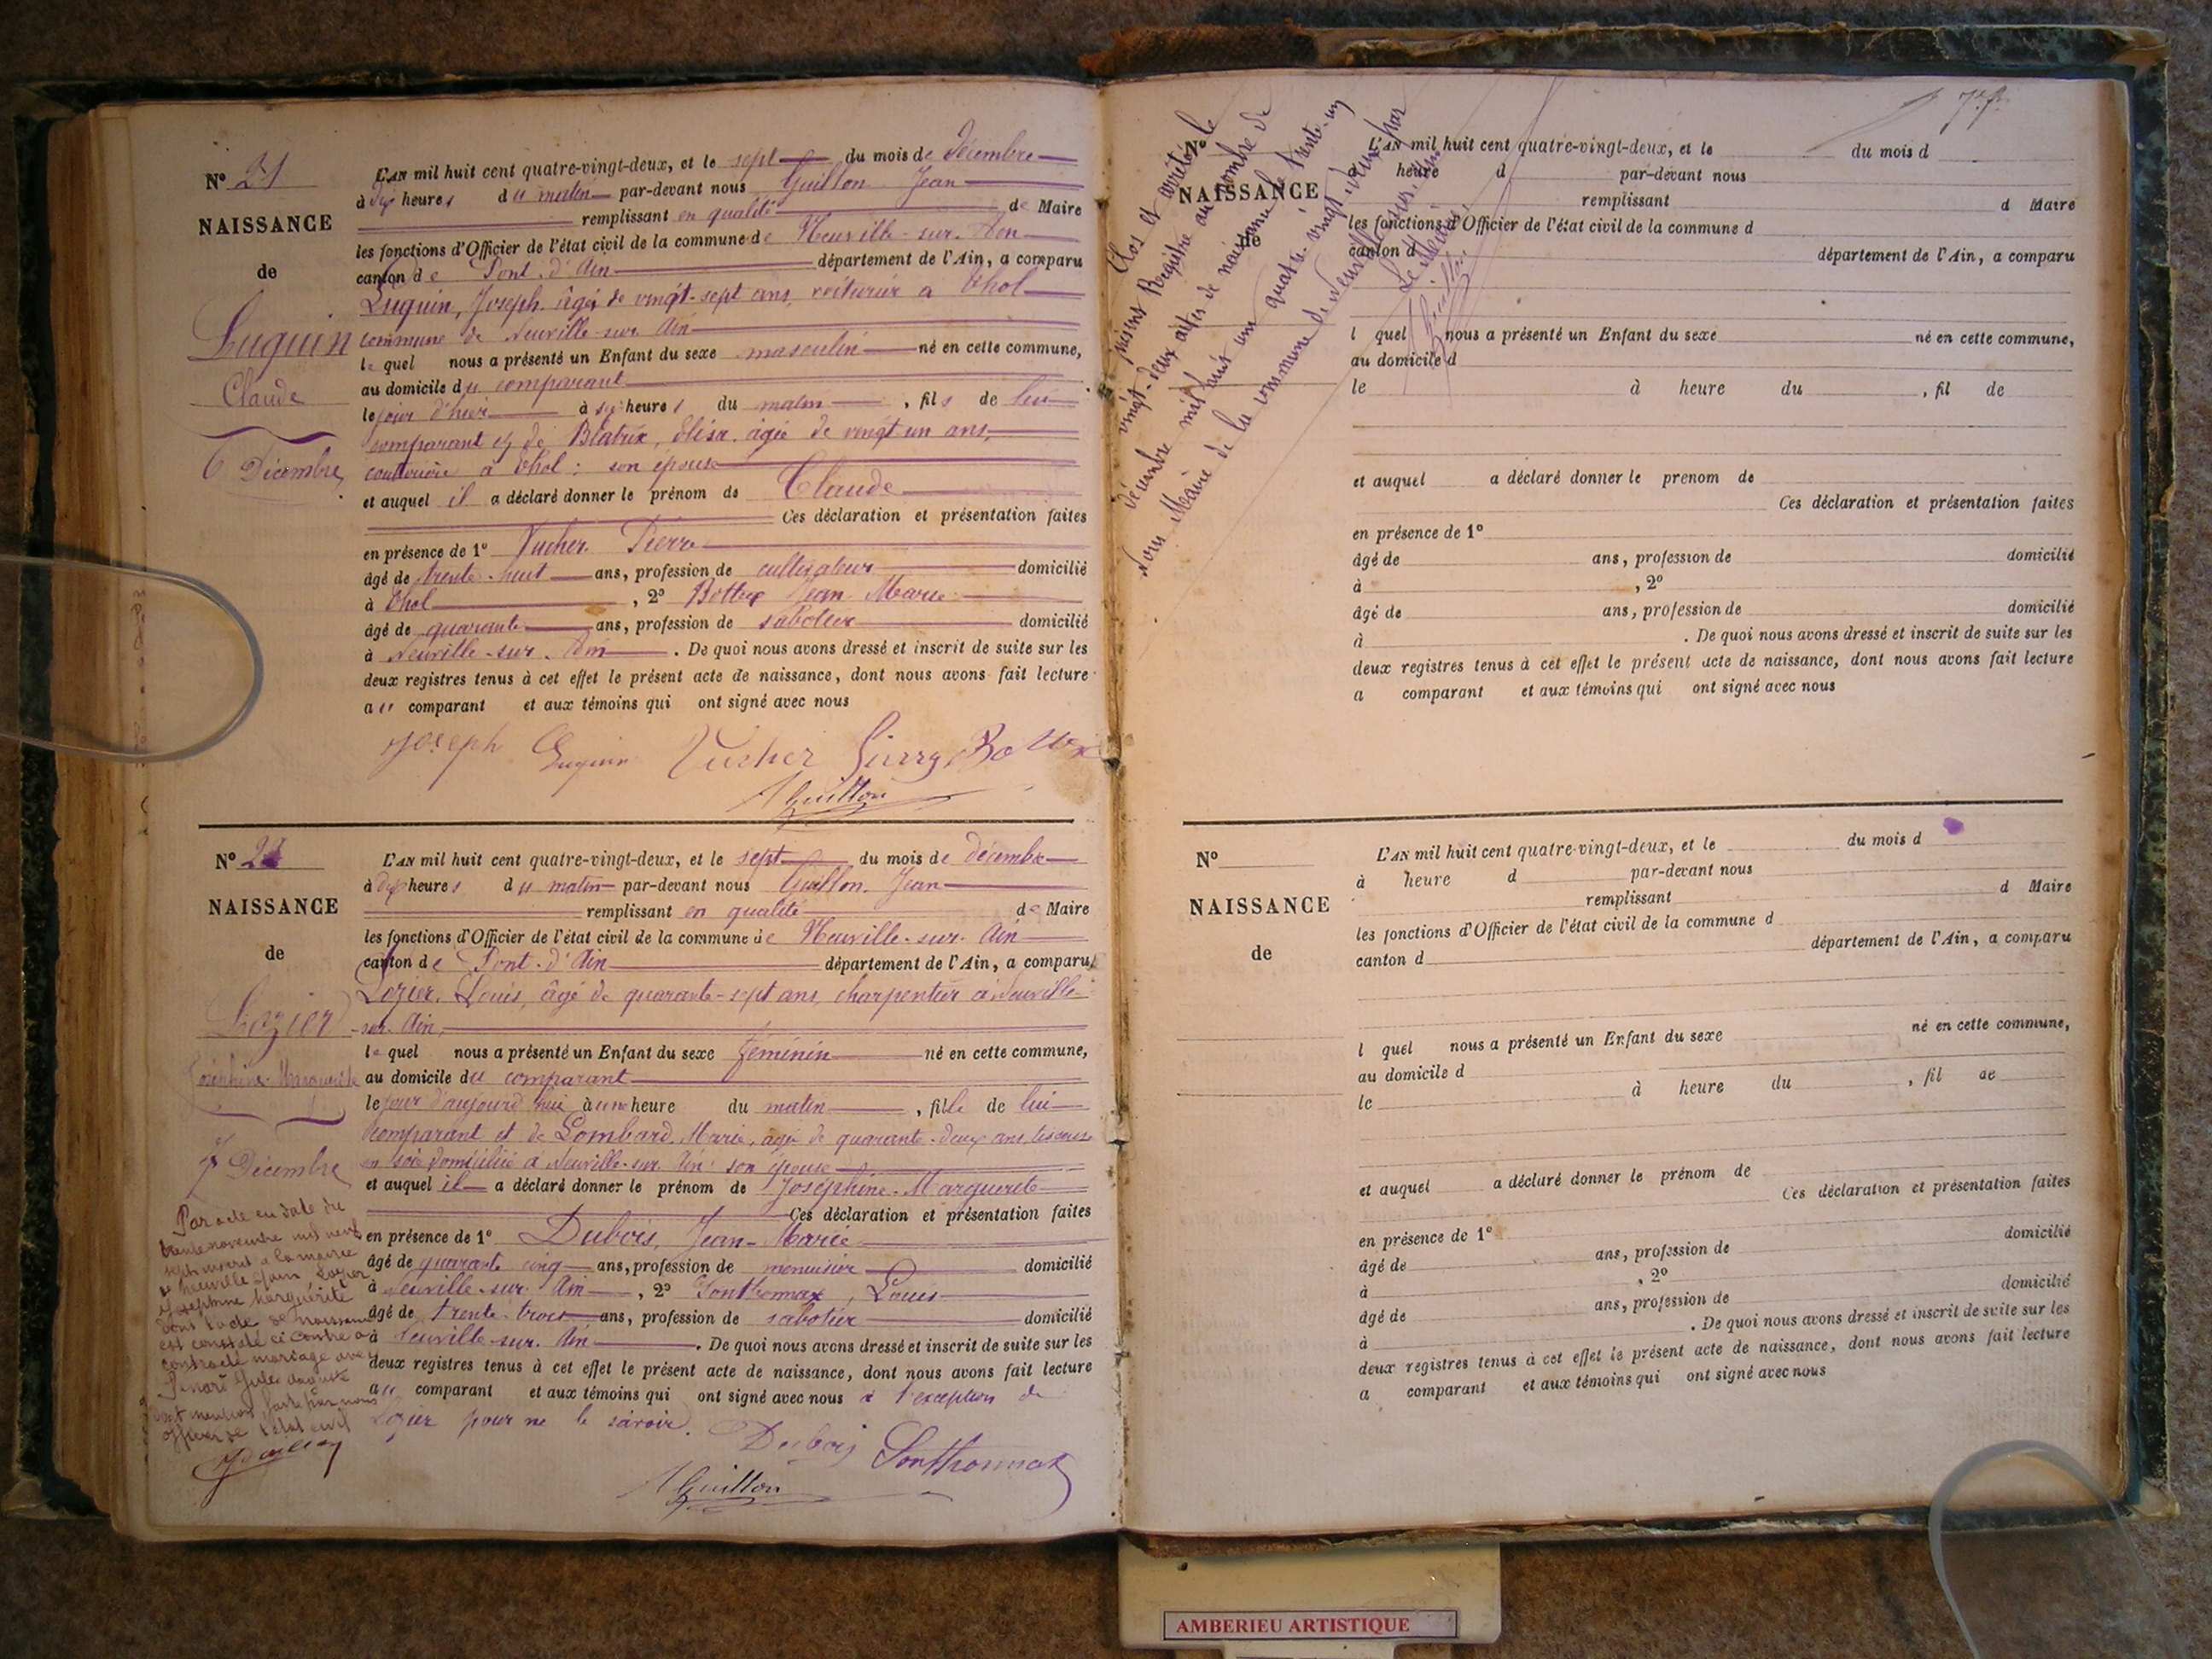 N° 21
NAISSANCE
de
Luguin
Claude
6 Décembre
L'AN mil huit cent quatre-vingt-deux, et le sept du mois de décembre
à dix heures du matin par-devant nous Guillon Jean
remplissant en qualité de Maire
les fonctions d'Officier de l'état civil de la commune de Neuville-sur-Ain
canton de Pont-d'Ain département de l'Ain, a comparu
Luguin, Joseph, âgé de vingt-sept ans, voiturier à Thol
commune de Neuville-sur-Ain
lequel nous a présenté un Enfant du sexe masculin né en cette commune,
au domicile du comparant
le jour d'hier à six heures du matin, fils de lui
comparant et de Blatrix, Elisa, âgée de vingt un ans,
couturière à Thol; son épouse
et auquel il a déclaré donner le prénom de Claude
Ces déclaration et présentation faites
en présence de 1° Vucher Pierre
âgé de trente-huit ans, profession de cultivateur domicilié
à Thol, 2° Bottex Jean Marie
âgé de quarante ans, profession de sabotier domicilié
à Neuville-sur-Ain. De quoi nous avons dressé et inscrit de suite sur les
deux registres tenus à cet effet le présent acte de naissance, dont nous avons fait lecture
au comparant et aux témoins qui ont signé avec nous
Joseph Luguin Vucher Pierre Bottex
Guillon
N° 22
NAISSANCE
de
Lozier
Joséphine-Marguerite
7 Décembre
L'AN mil huit cent quatre-vingt-deux, et le sept du mois de décembre
à dix heures du matin par-devant nous Guillon Jean
remplissant en qualité de Maire
les fonctions d'Officier de l'état civil de la commune de Neuville-sur-Ain
canton de Pont-d'Ain département de l'Ain, a comparu
Lozier, Louis, âgé de quarante-sept ans, charpentier à Neuville
-sur-Ain,
lequel nous a présenté un Enfant du sexe féminin né en cette commune,
au domicile du comparant
le jour d'aujourd'hui à une heure du matin, fille de lui
comparant et de Lombard, Marie, âgée de quarante-deux ans, tisseuse
en soie domiciliée à Neuville-sur-Ain; son épouse
et auquel il a déclaré donner le prénom de Joséphine-Marguerite
Ces déclaration et présentation faites
en présence de 1° Dubois, Jean-Marie
âgé de quarante cinq ans, profession de menuisier domicilié
à Neuville-sur-Ain, 2° Sonthonnax, Louis
âgé de trente-trois ans, profession de sabotier domicilié
à Neuville-sur-Ain. De quoi nous avons dressé et inscrit de suite sur les
deux registres tenus à cet effet le présent acte de naissance, dont nous avons fait lecture
au comparant et aux témoins qui ont signé avec nous à l'exception de
Lozier pour ne le savoir.
Dubois Sonthonnax
Guillon
Par acte en date du
trente novembre mil neuf
sept inscrit à la mairie
de Neuville s/ain Lozier
Joséphine Marguerite
dont l'acte de naissance
est constaté ci contre a
contracté mariage avec
Jules
dont mention faite par nous
officier de l'état civil
Clos et arrêté le
présent Registre au nombre de
vingt-deux actes de naissance le trente-un
décembre mil huit cent quatre-vingt-deux par
Nous Maire de la commune de Neuville-sur-Ain
Le Maire
Guillon
N°
NAISSANCE
de
L'AN mil huit cent quatre-vingt-deux, et le du mois d
heure d par-devant nous
remplissant d Maire
les fonctions d'Officier de l'état civil de la commune d
canton d département de l'Ain, a comparu
l quel nous a présenté un Enfant du sexe né en cette commune,
au domicile d
le à heure du , fil de
et auquel a déclaré donner le prenom de
Ces déclaration et présentation faites
en présence de 1°
âgé de ans, profession de domicilié
à , 2°
âgé de ans, profession de domicilié
à . De quoi nous avons dressé et inscrit de suite sur les
deux registres tenus à cet effet le présent acte de naissance, dont nous avons fait lecture
a comparant et aux témoins qui ont signé avec nous
N°
NAISSANCE
de
L'AN mil huit cent quatre-vingt-deux, et le du mois d
à heure d par-devant nous
remplissant d Maire
les fonctions d'Officier de l'état civil de la commune d
canton d département de l'Ain, a comparu
l quel nous a présenté un Enfant du sexe né en cette commune,
au domicile d
le à heure du , fil de
et auquel a déclaré donner le prénom de
Ces déclaration et présentation faites
en présence de 1°
âgé de ans, profession de domicilié
à , 2°
âgé de ans, profession de domicilié
à . De quoi nous avons dressé et inscrit de suite sur les
deux registres tenus à cet effet le présent acte de naissance, dont nous avons fait lecture
a comparant et aux témoins qui ont signé avec nous
AMBERIEU ARTISTIQUE